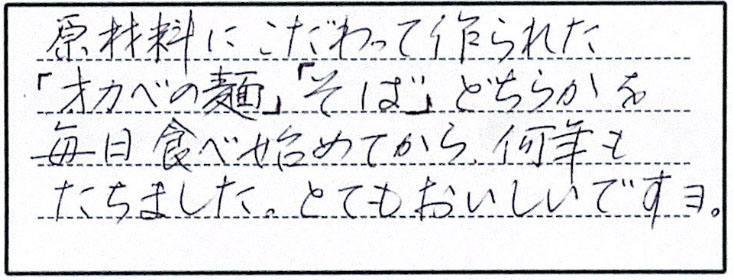 原材料にこだわって作られた
「オカベの麺」「そば」どちらかを
毎日食べ始めてから、何年も
たちました。とてもおいしいですヨ。